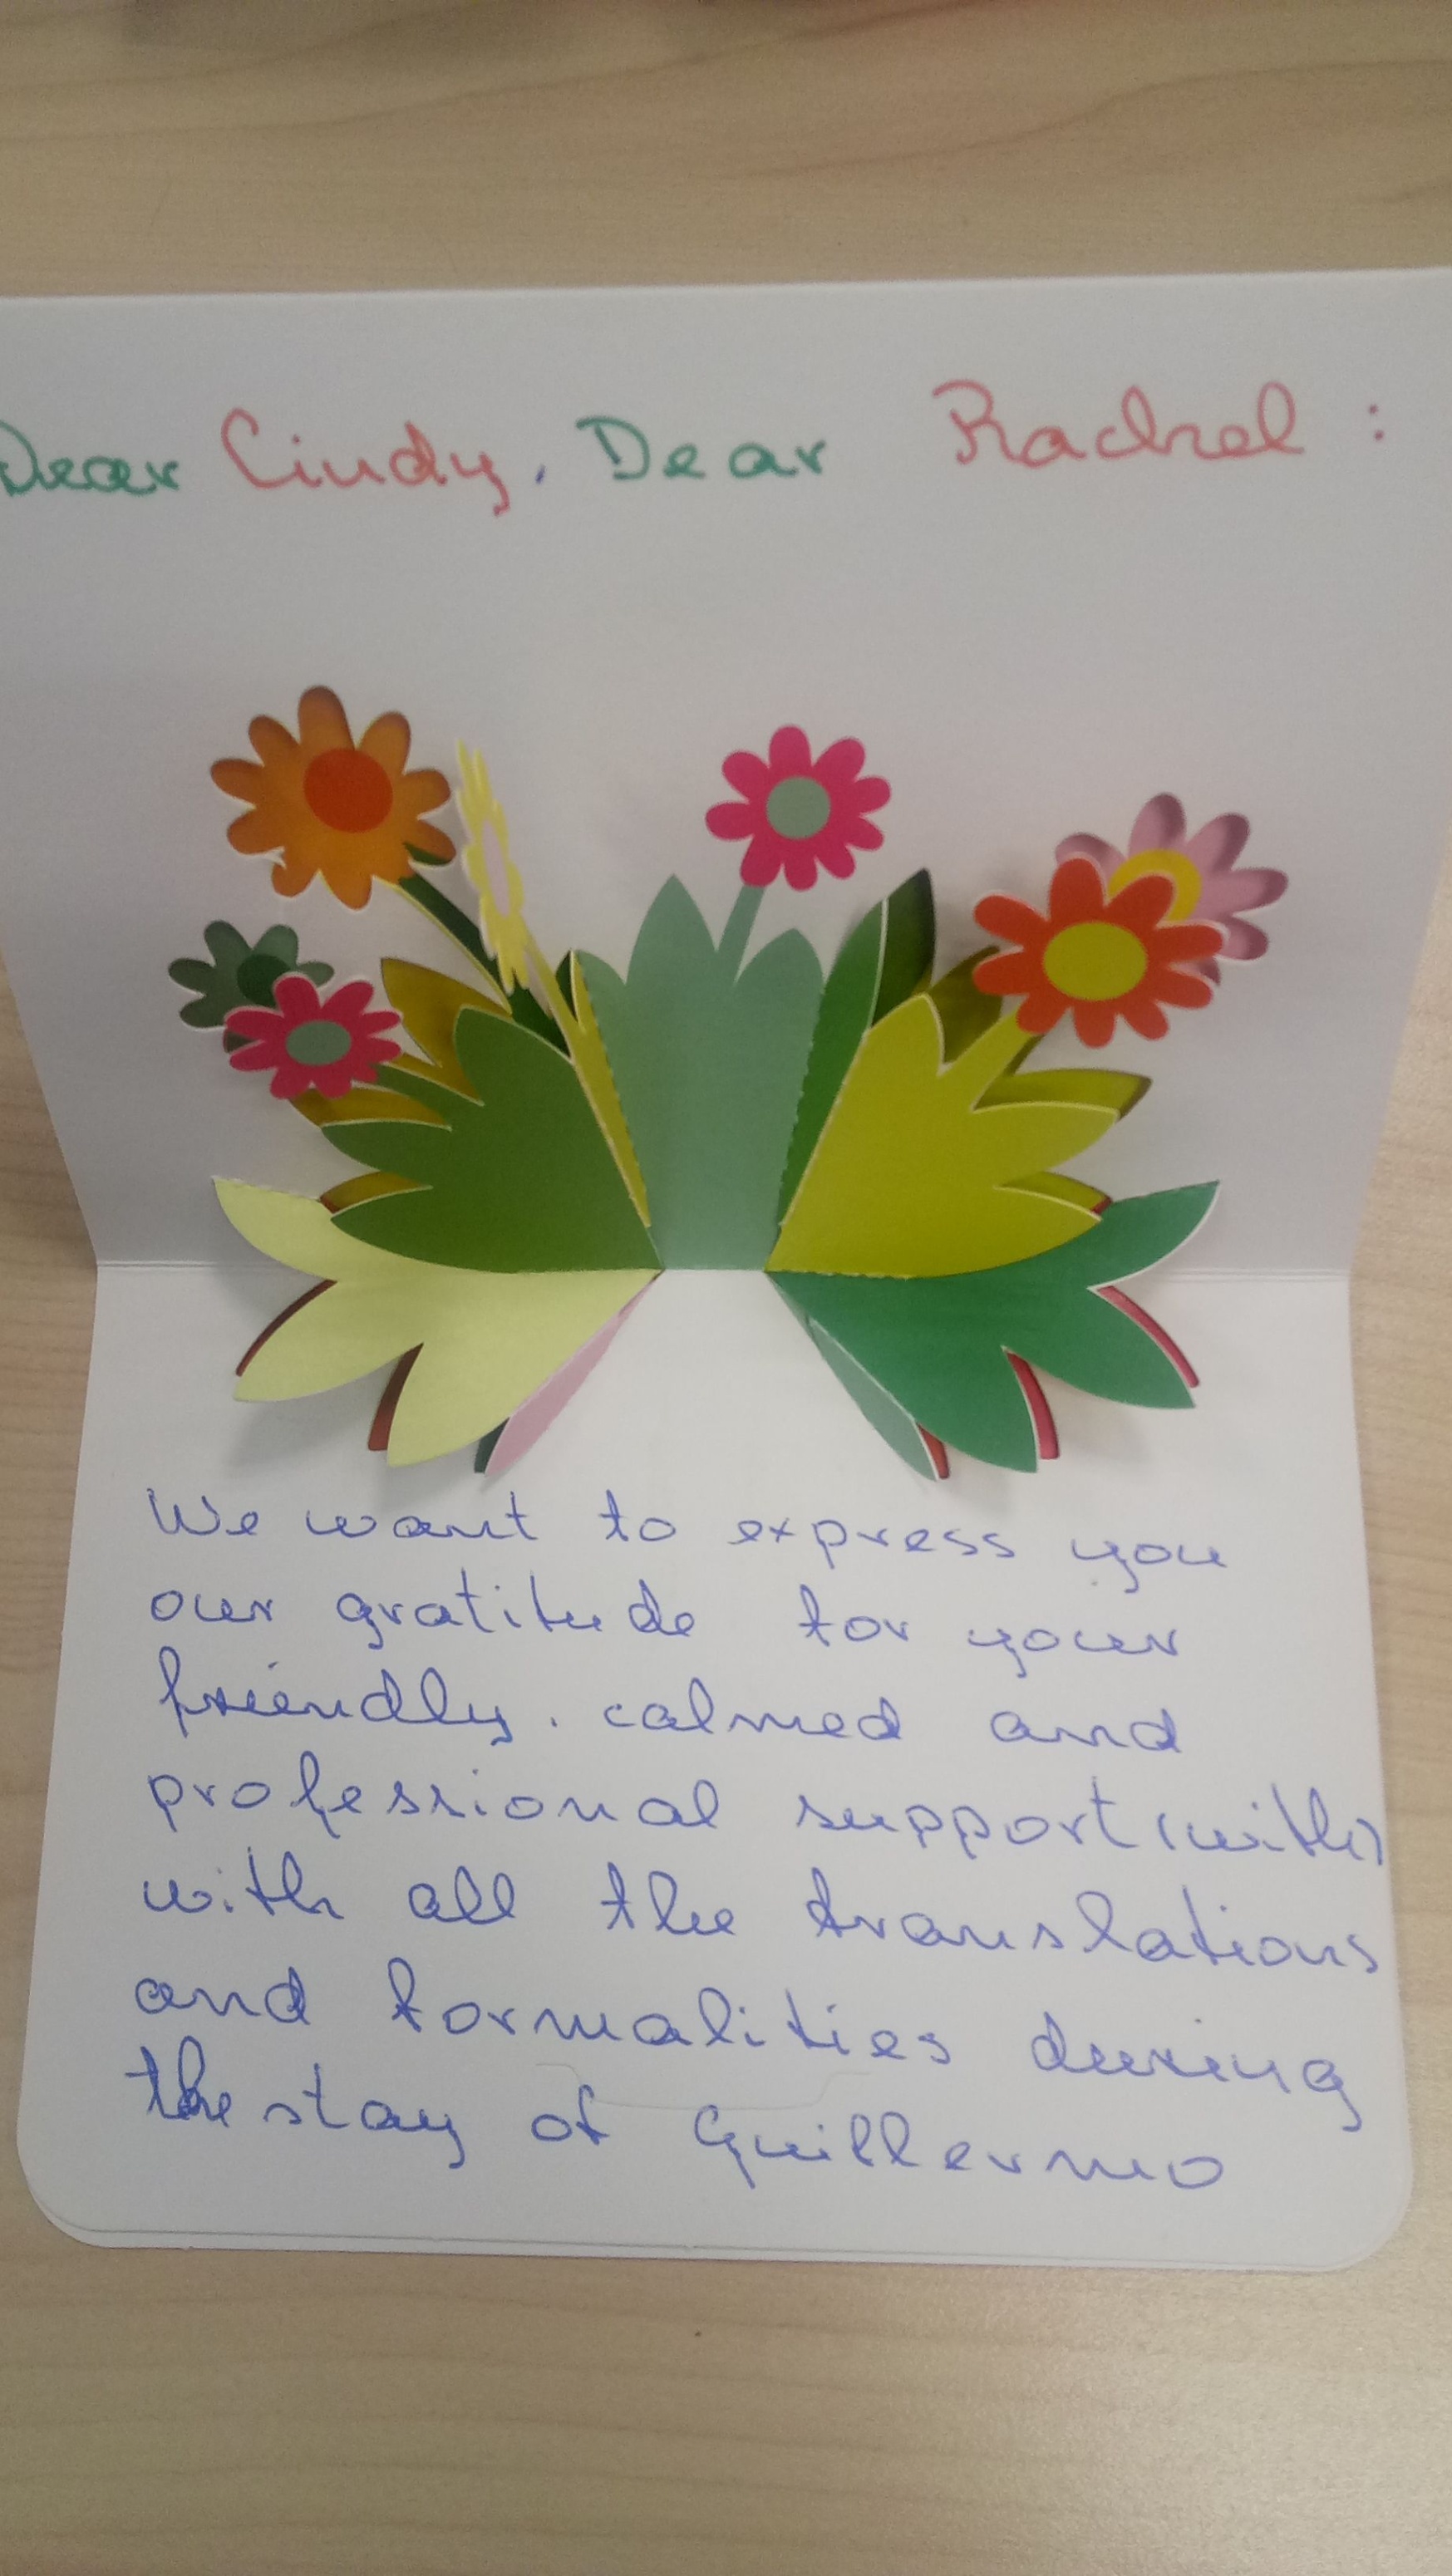 Dear Cindy, Dear Rachel :
We want to express you
our gratitude for your
friendly, calmed and
professional support (with)
with all the translations
and formalities during
the stay of Guillermo